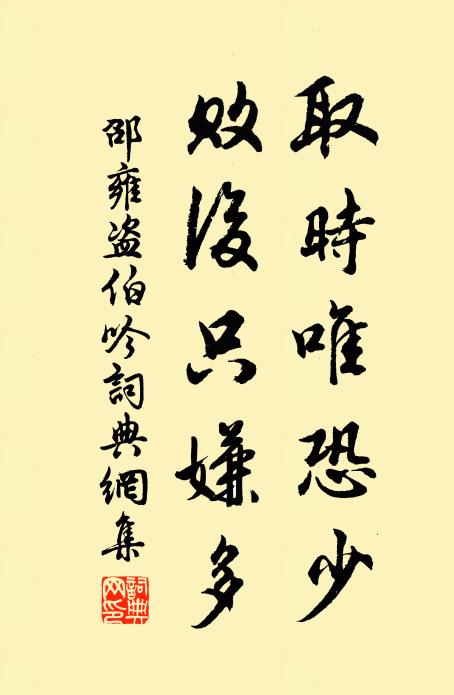 取時唯恐少
敗後只嫌多
邵雍盗伯吟詞典網集
詞典網印